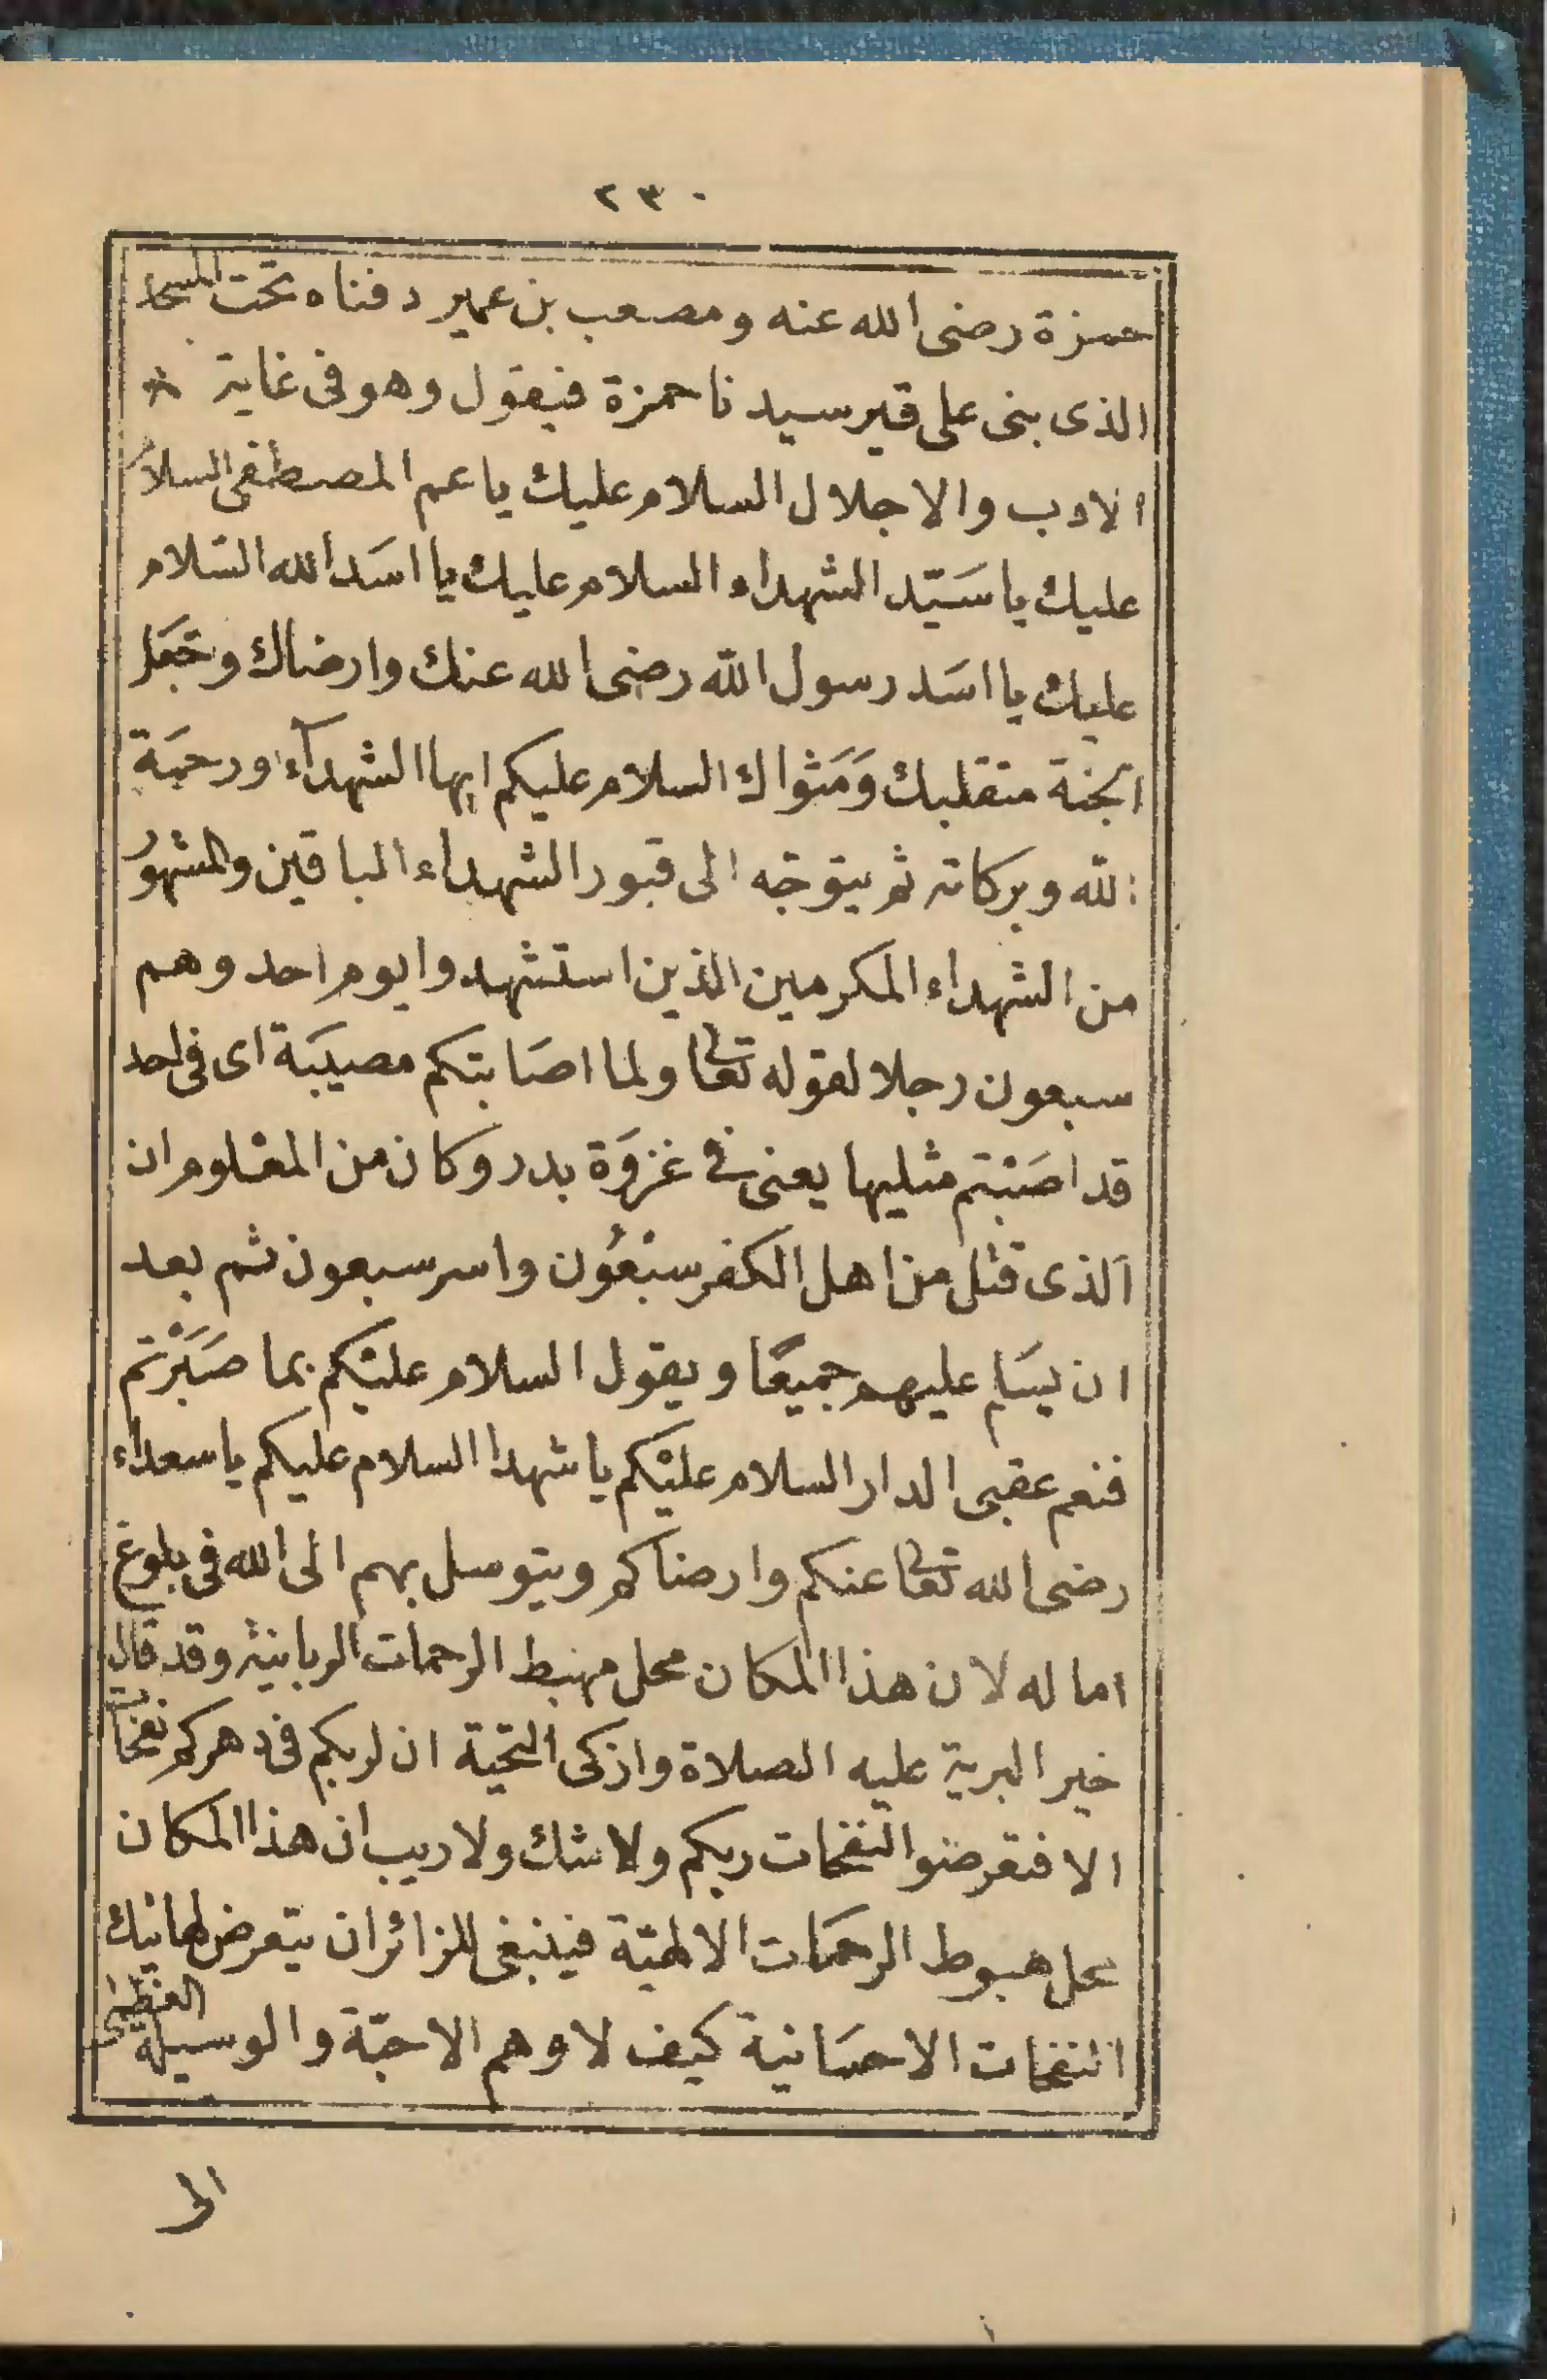 ٢٣٠
حمزة رضى الله عنه ومصعب بن عمير دفناه تحت المسجد
الذى بنى على قبر سيدنا حمزة فيقول وهو فى غاية *
الادب والاجلال السلام عليك يا عم المصطفى السلام
عليك يا سَيّد الشهداء السلام عليك يا اسَد الله السّلام
عليك يا اسَد رسول الله رضى الله عنك وارضاك وجَعَل
الجنة متقلبك وَمَثواك السلام عليكم ايها الشهدآء ورحمَة
الله وبركاته ثم يتوجّه الى قبور الشهداء الباقين والمشهورُ
من الشهداء المكرمين الذين استشهدوا يوم احد وهم
سبعون رجلا لقوله تعالى ولما اصَابتكم مصيبَة اى فى احد
قد اصَبْتم مثليها يعنى فى غزوَة بدر وكان من المعْلوم ان
الذى قتل من اهل الكفر سبْعُون واسر سبعون ثم بعد
ان يسَلم عليهم جميعًا ويقول السلام عليْكم بما صَبَرْتم
فنعم عقبى الدار السلام عليْكم يا شهدا السلام عليكم يا سعداء
رضى الله تعالى عنكم وارضاكم ويتوسل بهم الى الله فى بلوغ
اماله لان هذا المكان محل مهبط الرحمات الربانية وقد قال
خير البرية عليه الصلاة وازكى التحيّة ان لربكم فى دهركم نفحات
الا فتعرضوا لنفحات ربكم ولا شك ولا ريب ان هذا المكان
محل هبوط الرحمَات الالهيّة فينبغى للزائر ان يتعرض لهاتيك
النفحات الاحسَانية كيف لا وهم الاحبّة والوسيلة العظمى
الى